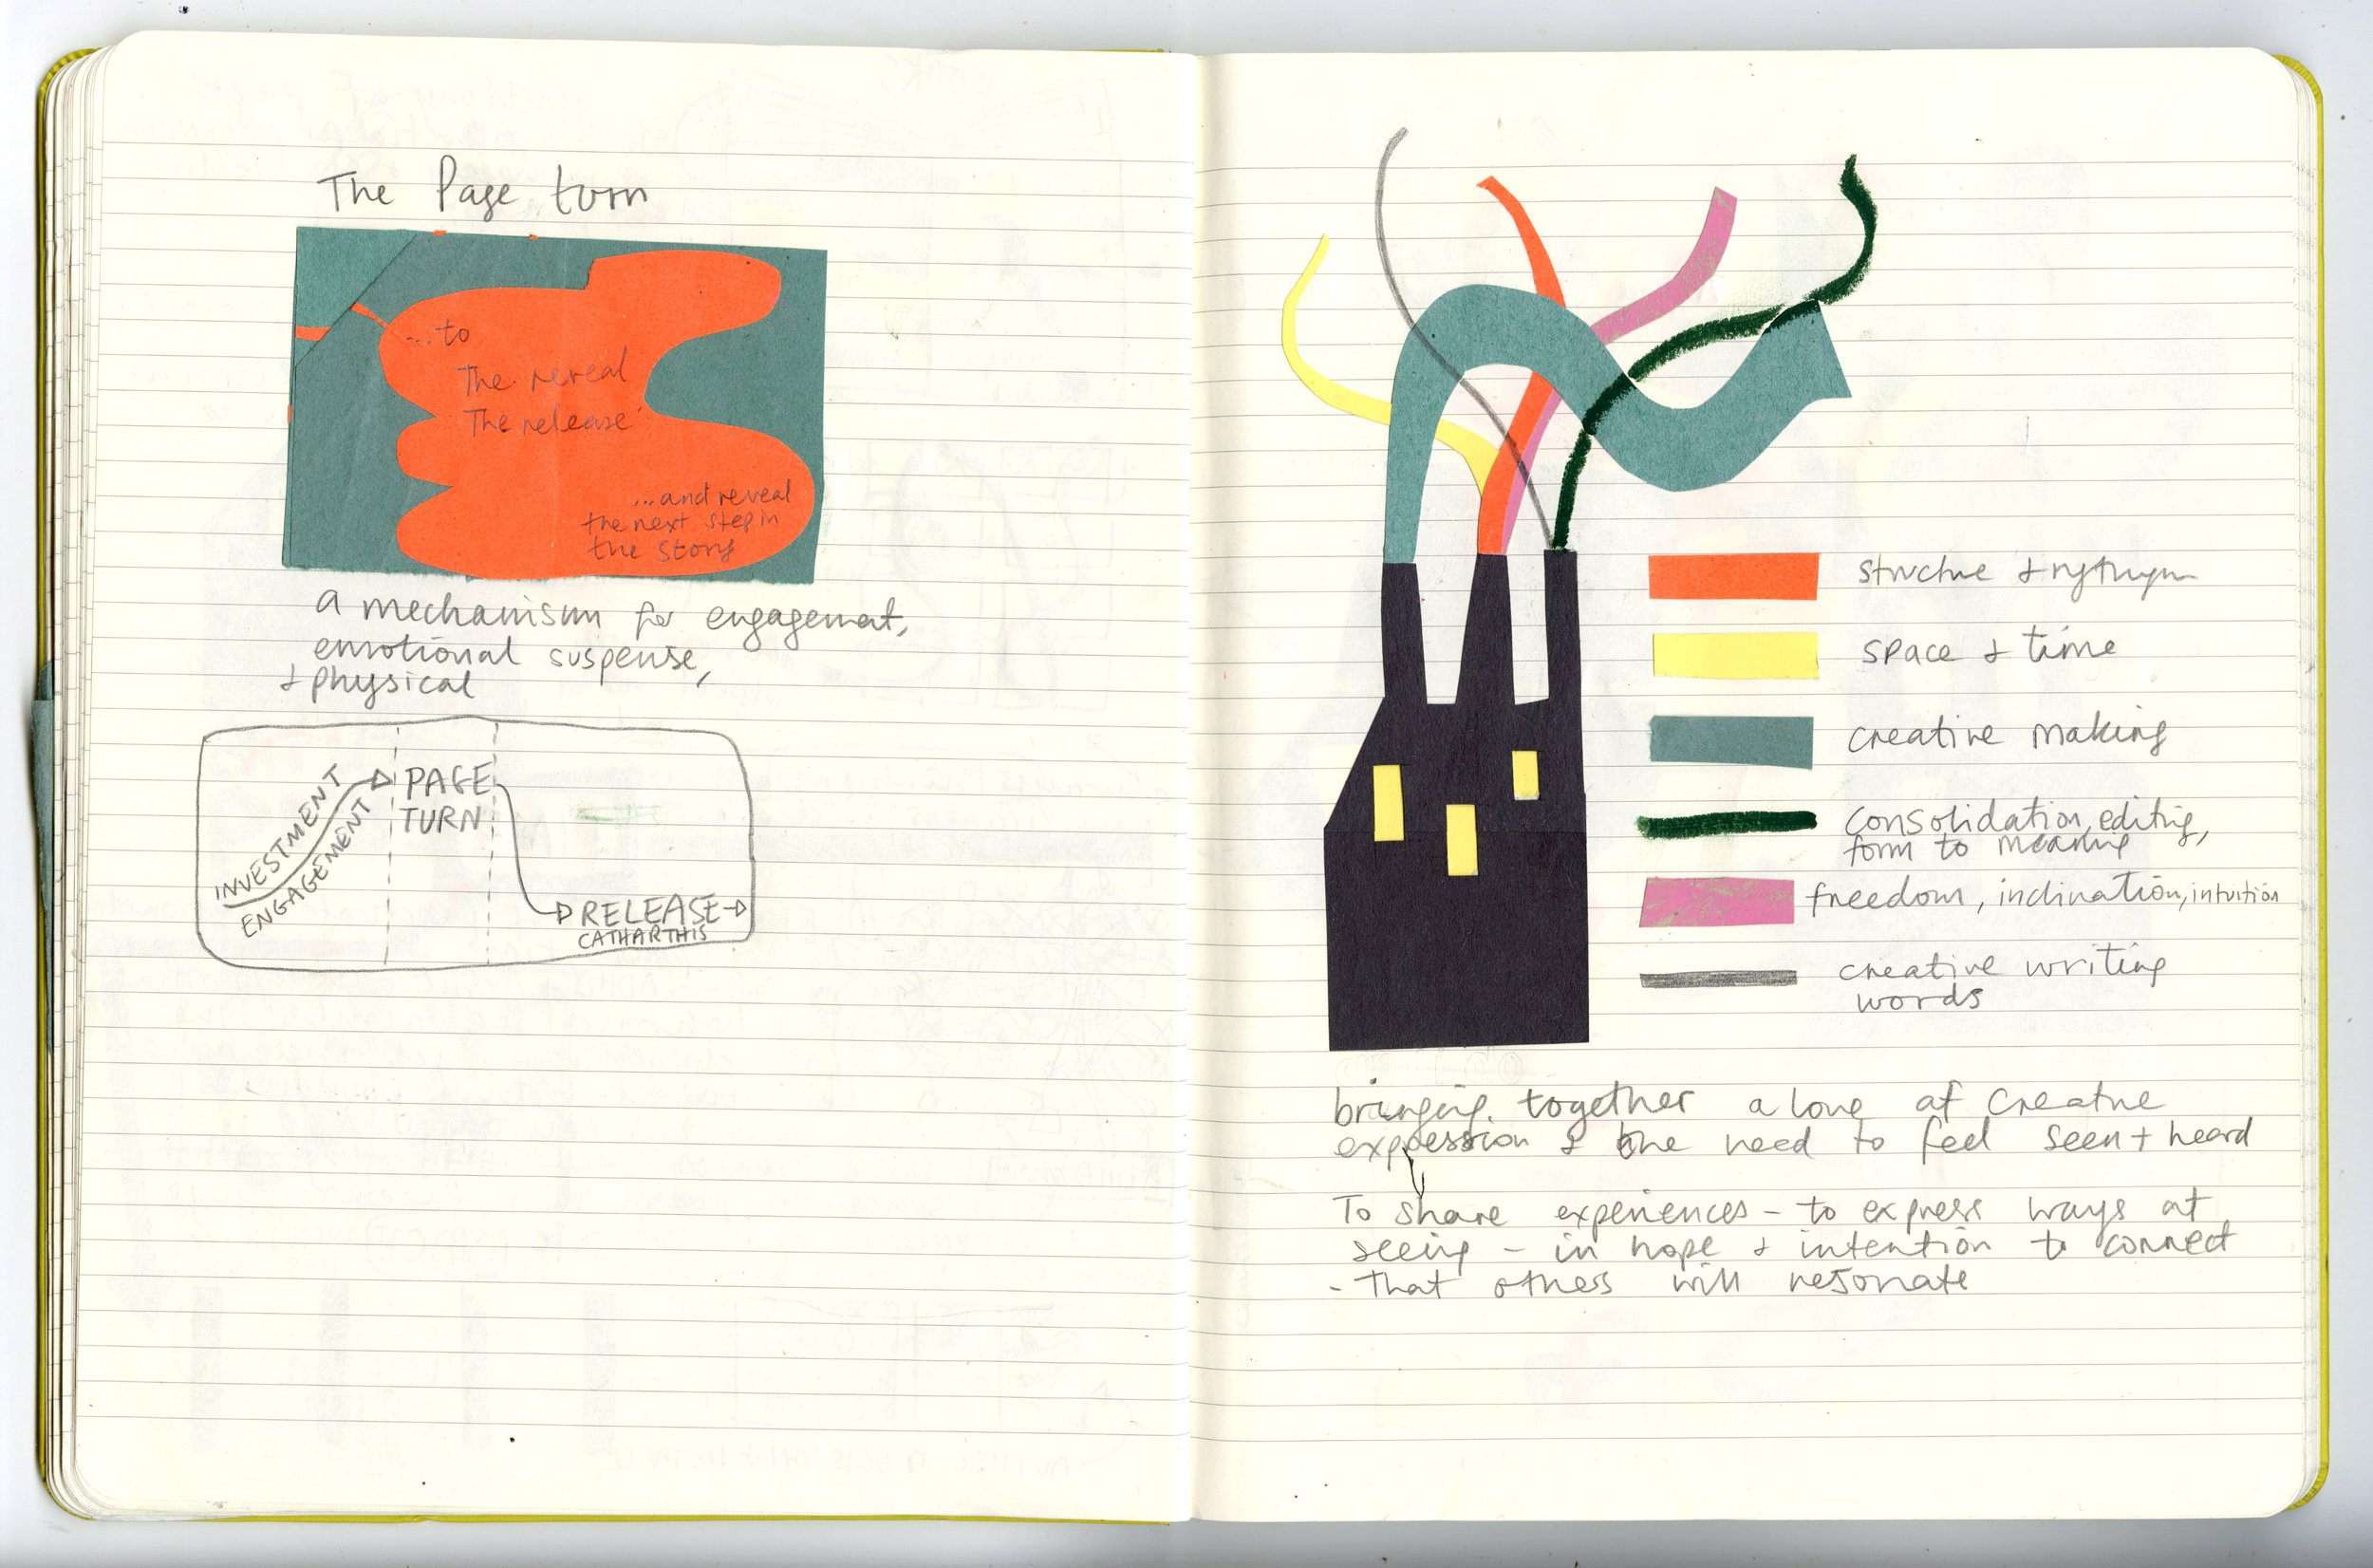 The Page turn
...to
The reveal
The release
...and reveal
the next step in
the story
a mechanism for engagement,
emotional suspense,
& physical
INVESTMENT
ENGAGEMENT
PAGE
TURN
RELEASE
CATHARTHIS
structure & rythym
space & time
creative making
consolidation, editing,
form to meaning
freedom, inclination, intuition
creative writing
words
bringing together a love of creative
expression & the need to feel seen + heard
To share experiences - to express ways of
seeing - in hope & intention to connect
- that others will resonate